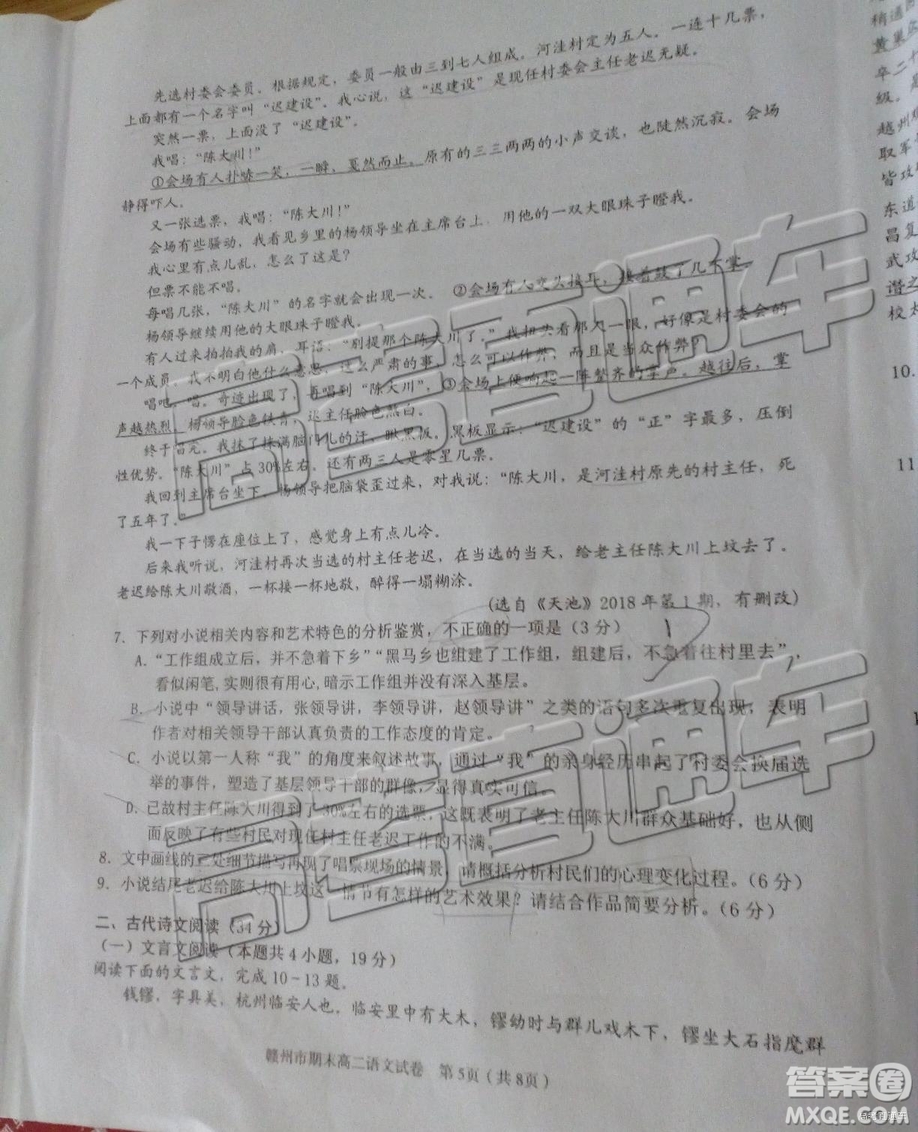 先选村委会委员。根据规定，委员一般由三到七人组成，河洼村定为五人。一连十几票，
上面都有一个名字叫“迟建设”。我心说，这“迟建设”是现任村委会主任老迟无疑。
突然一票，上面没了“迟建设”。
我唱：“陈大川！”
①会场有人扑哧一笑，一瞬，戛然而止。原有的三三两两的小声交谈，也陡然沉寂。会场
静得吓人。
又一张选票，我唱：“陈大川！”
会场有些骚动，我看见乡里的杨领导坐在主席台上，用他的一双大眼珠子瞪我。
我心里有点儿乱，怎么了这是？
但票不能不唱。
每唱几张，“陈大川”的名字就会出现一次。②会场有人交头接耳，接着鼓了几下掌
杨领导继续用他的大眼珠子瞪我。
有人过来拍拍我的肩，耳语：“别提那个陈大川了。”我扭头看那人一眼，好像是村委会的
一个成员，我不明白他什么意思，这么严肃的事，怎么可以作弊，而且当众作弊？
唱吧，唱。奇迹出现了，再唱到“陈大川”，③会场上便响起一阵整齐的掌声。越往后，掌
声越热烈。杨领导脸色铁青，迟主任脸色煞白。
终于唱完。我抹了抹满脑门儿的汗，瞅黑板。黑板显示：“迟建设”的“正”字最多，压倒
性优势。“陈大川”占30%左右，还有两三人是零星几票。
我回到主席台坐下，杨领导把脑袋歪过来，对我说：“陈大川，是河洼村原先的村主任，死
了五年了。”
我一下子愣在座位上了，感觉身上有点儿冷。
后来我听说，河洼村再次当选的村主任老迟，在当选的当天，给老主任陈大川上坟去了。
老迟给陈大川敬酒，一杯接一杯地敬，醉得一塌糊涂。
（选自《天池》2018年第1期，有删改）
7．下列对小说相关内容和艺术特色的分析鉴赏，不正确的一项是（3分）
A．“工作组成立后，并不急着下乡”“黑马乡也组建了工作组，组建后，不急着往村里去”，
看似闲笔，实则很有用心，暗示工作组并没有深入基层。
B．小说中“领导讲话，张领导讲，李领导讲，赵领导讲”之类的语句多次重复出现，表明
作者对相关领导干部认真负责的工作态度的肯定。
C．小说以第一人称“我”的角度来叙述故事，通过“我”的亲身经历串起了村委会换届选
举的事件，塑造了基层领导干部的群像，显得真实可信。
D．已故村主任陈大川得到了30%左右的选票，这表明了老主任陈大川群众基础好，也从侧
面反映了有些村民对现任村主任老迟工作的不满。
8．文中画线的三处细节描写再现了唱票现场的情景，请概括分析村民们的心理变化过程。（6分）
9．小说结尾老迟给陈大川上坟这一情节有怎样的艺术效果？请结合作品简要分析。（6分）
二、古代诗文阅读（34分）
（一）文言文阅读（本题共4小题，19分）
阅读下面的文言文，完成10-13题。
钱镠，字具美，杭州临安人也，临安里中有大木，镠幼时与群儿戏木下，镠坐大石指麾群
赣州市期末高二语文试卷 第5页（共8页）
稍通
黄巢
卒二
级。
越州
取军
皆攻
东道
昌复
武攻
谱
校太
10.
11
高考直通车
高考直通车
答案圈
MXQE.COM